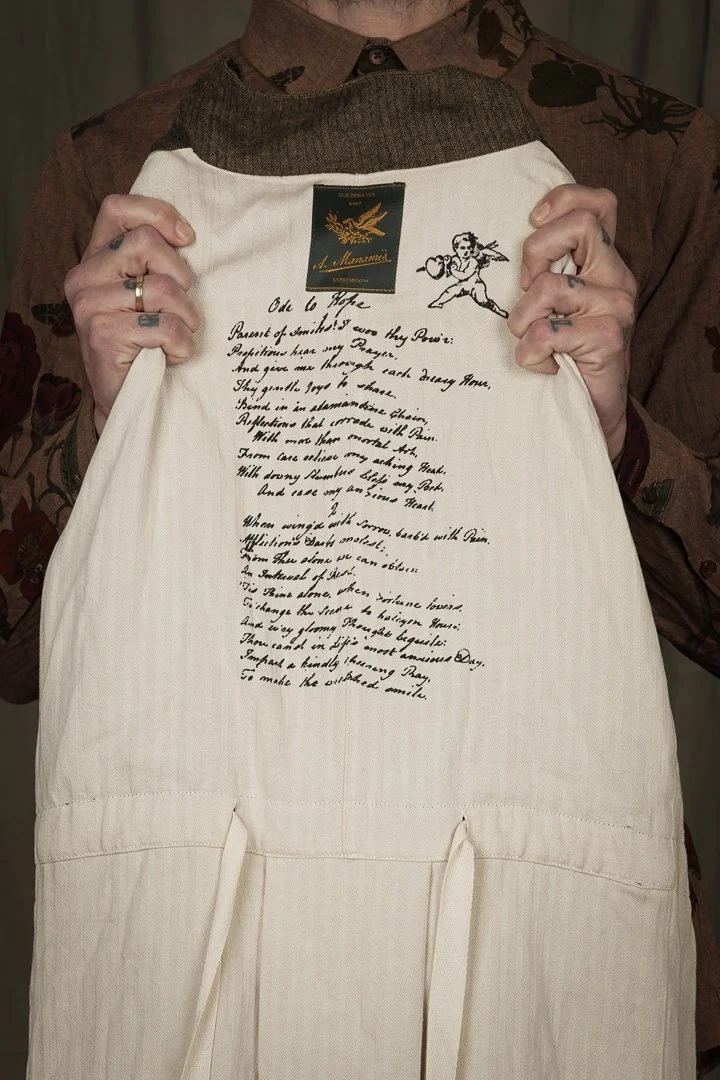 A. Manamis
Ode to Hope
Parent of Smiles! I woo thy Pow'r:
Propitious hear my Prayer,
And give me through each dreary Hour,
Thy gentle Joys to share.
Bind in an adamantine Chain,
Reflections that corrode with Pain.
With more than mortal Art,
From care relieve my aching Head,
With downy Slumbers bless my Bed,
And ease my anxious Heart.
2
When wing'd with Sorrow, barb'd with Pain,
Affliction's Darts molest;
From Thee alone we can obtain
An Interval of Rest.
'Tis Thine alone, when Fortune lowers,
To change the Scene to halcyon Hours;
And ev'ry gloomy Thought beguile;
Thou canst in Life's most anxious Day,
Impart a kindly cheering Ray,
To make the wretched smile.